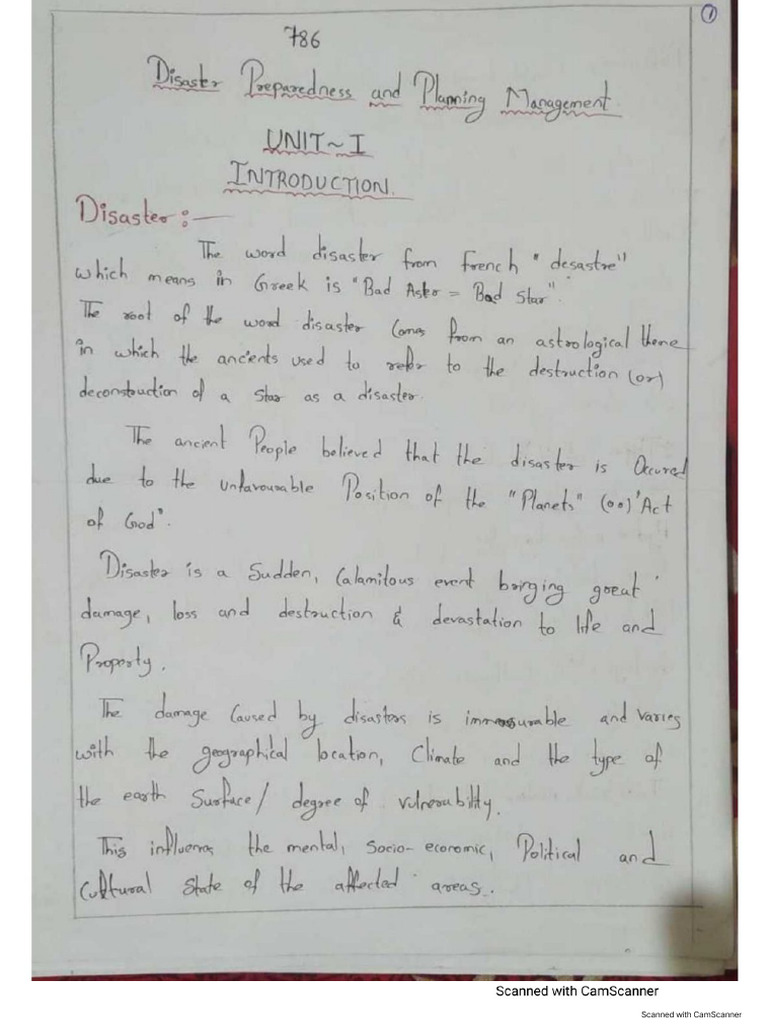 1
786
Disaster Preparedness and Planning Management.
UNIT~I
INTRODUCTION.
Disaster:-
The word disaster from French "desastre"
which means in Greek is "Bad Aster = Bad Star".
The root of the word disaster Comes from an astrological theme
in which the ancients used to refer to the destruction (or)
deconstruction of a star as a disaster.
The ancient People believed that the disaster is Occured
due to the unfavourable Position of the "Planets" (or) 'Act
of God".
Disaster is a Sudden, Calamitous event bringing great
damage, loss and destruction & devastation to life and
Property.
The damage Caused by disasters is immesurable and varies
with the geographical location, Climate and the type of
the earth Surface/ degree of vulnerability.
This influence the mental, Socio-economic, Political and
Cultural State of the affected areas.
Scanned with CamScanner
Scanned with CamScanner